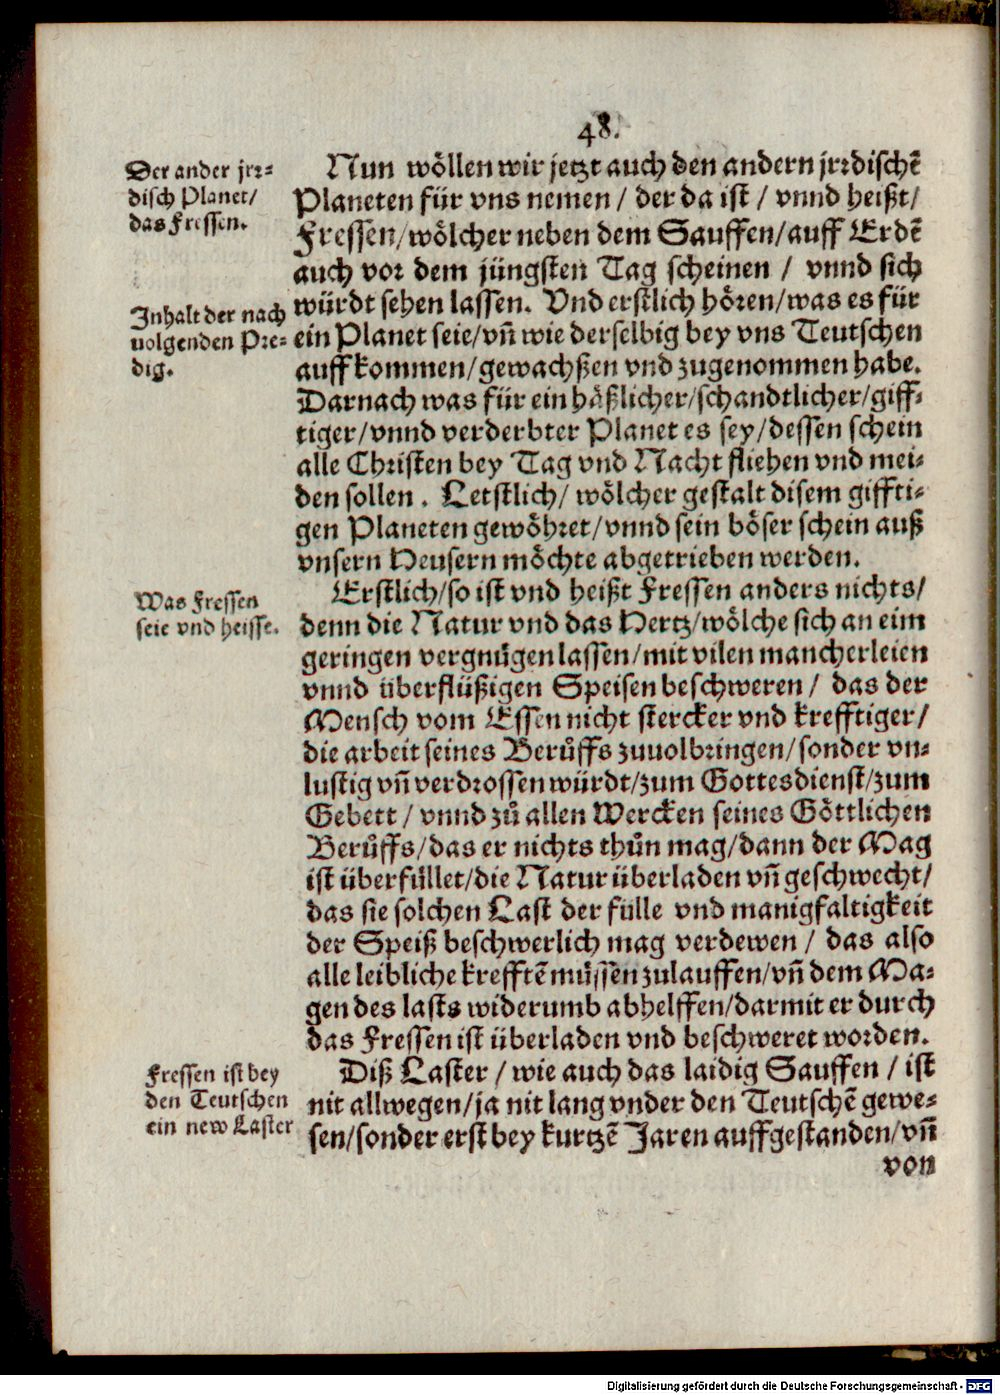 48.
Der ander jrr-
disch Planet/
das Fressen.
Nun wöllen wir jetzt auch den andern jrrdischẽ
Planeten für vns nemen / der da ist / vnnd heißt/
Fressen/wölcher neben dem Sauffen/auff Erdẽ
auch vor dem jüngsten Tag scheinen / vnnd sich
würdt sehen lassen. Vnd erstlich hören/was es für
Inhalt der nach
uolgenden Pre-
dig.
ein Planet seie/vñ wie derselbig bey vns Teutschen
auffkommen/gewachßen vnd zugenommen habe.
Darnach was für ein häßlicher/schandtlicher/giff-
tiger/vnnd verderbter Planet es sey/dessen schein
alle Christen bey Tag vnd Nacht fliehen vnd mei-
den sollen . Letstlich/ wölcher gestalt disem giffti-
gen Planeten gewöhret/vnnd sein böser schein auß
vnsern Heusern möchte abgetrieben werden.
Was Fressen
seie vnd heisse.
Erstlich/so ist vnd heißt Fressen anders nichts/
denn die Natur vnd das Hertz/wölche sich an eim
geringen vergnügen lassen/mit vilen mancherleien
vnnd überflüßigen Speisen beschweren / das der
Mensch vom Essen nicht stercker vnd krefftiger/
die arbeit seines Berůffs zuuolbringen/sonder vn-
lustig vñ verdrossen würdt/zum Gottesdienst/zum
Gebett / vnnd zů allen Wercken seines Göttlichen
Berůffs/das er nichts thůn mag/dann der Mag
ist überfüllet/die Natur überladen vñ geschwecht/
das sie solchen Last der fülle vnd manigfaltigkeit
der Speiß beschwerlich mag verdewen / das also
alle leibliche krefftẽ müssen zulauffen/vñ dem Ma-
gen des lasts widerumb abhelffen/darmit er durch
das Fressen ist überladen vnd beschweret worden.
Fressen ist bey
den Teutschen
ein new Laster
Diß Laster / wie auch das laidig Sauffen / ist
nit allwegen/ja nit lang vnder den Teutschẽ gewe-
sen/sonder erst bey kurtzẽ Jaren auffgestanden/vñ
von
Digitalisierung gefördert durch die Deutsche Forschungsgemeinschaft - DFG